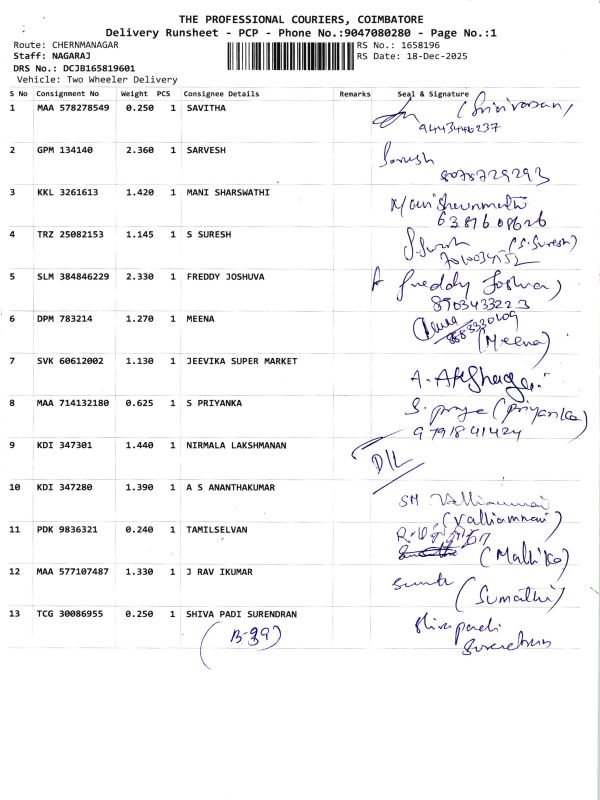 THE PROFESSIONAL COURIERS, COIMBATORE
Delivery Runsheet - PCP - Phone No.:9047080280 - Page No.:1
Route: CHERNMANAGAR RS No.: 1658196
Staff: NAGARAJ RS Date: 18-Dec-2025
DRS No.: DCJB165819601
Vehicle: Two Wheeler Delivery
S No Consignment No Weight PCS Consignee Details Remarks Seal & Signature
1 MAA 578278549 0.250 1 SAVITHA (Srinivasan)
9443446237
2 GPM 134140 2.360 1 SARVESH Sarvesh
8078729293
3 KKL 3261613 1.420 1 MANI SHARSWATHI
6387608626
4 TRZ 25082153 1.145 1 S SURESH S.Suresh (S.Suresh)
5 SLM 384846229 2.330 1 FREDDY JOSHUVA Freddy Joshua)
8903433223
6 DPM 783214 1.270 1 MEENA
(Meena)
7 SVK 60612002 1.130 1 JEEVIKA SUPER MARKET
8 MAA 714132180 0.625 1 S PRIYANKA S. priya (priyanka)
9791841424
9 KDI 347301 1.440 1 NIRMALA LAKSHMANAN D/L
10 KDI 347280 1.390 1 A S ANANTHAKUMAR
(Valliammai)
11 PDK 9836321 0.240 1 TAMILSELVAN
(Mallika)
12 MAA 577107487 1.330 1 J RAV IKUMAR
(Sumathi)
13 TCG 30086955 0.250 1 SHIVA PADI SURENDRAN Shivapadi
Surendran